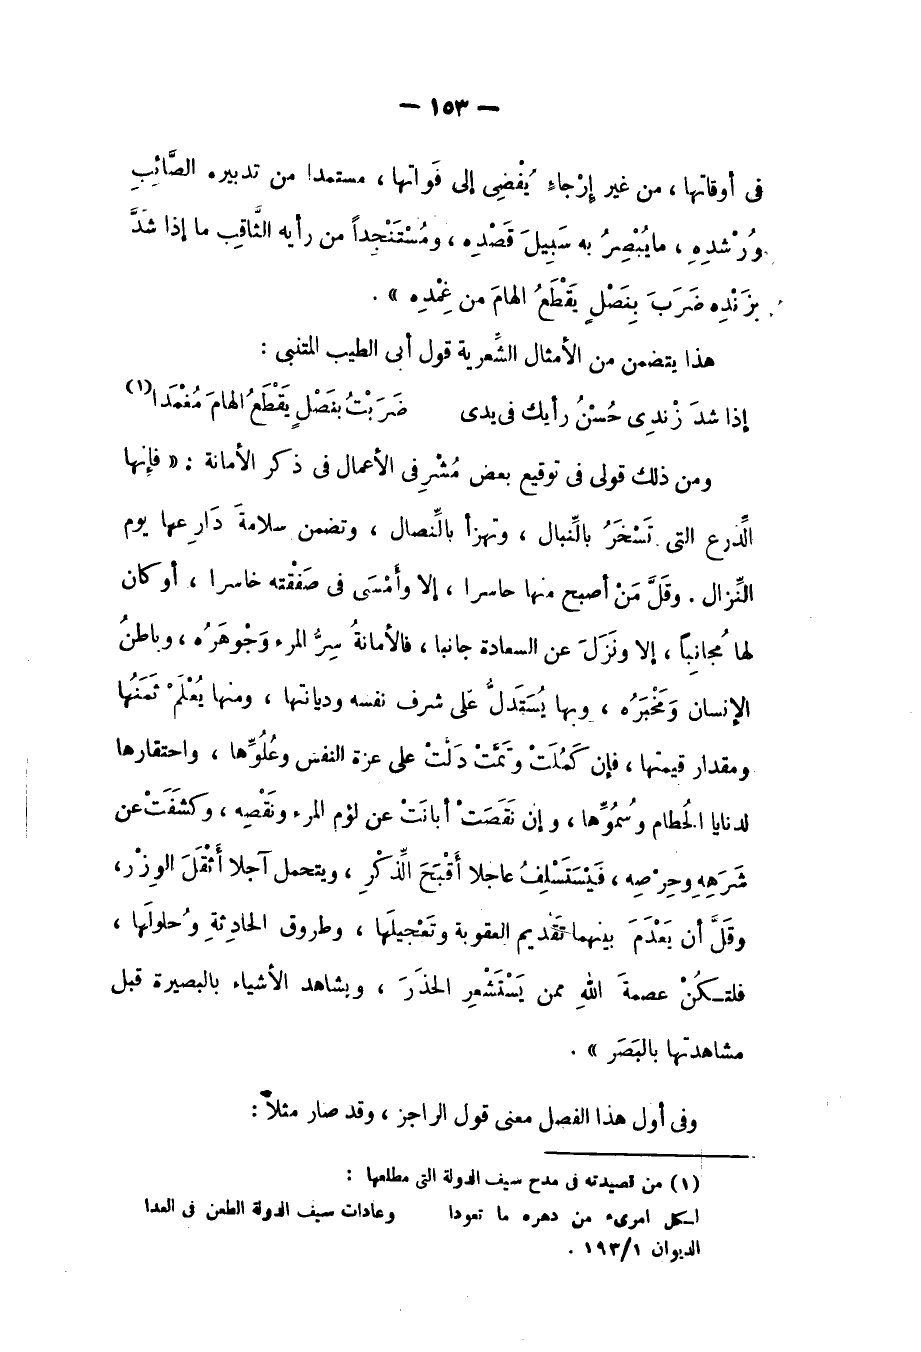 — ١٥٣ —
فى أوقاتها ، من غير إِرْجاءِ يُفْضِى إلى فَواتها ، مستمدا من تدبيره الصَّائِبِ
ورُشْدِهِ ، مايُبْصِرُ به سَبِيلَ قَصْدِه ، ومُسْتَنْجِداً من رأيه الثَّاقِبِ ما إذا شَدَّ
بزَنْدِه ضَرَبَ بِنَصْلٍ يَقْطَعُ الهامَ من غِمْدِه » .
هذا يتضمن من الأمثال الشِّعرية قول أبى الطيب المتنبى :
إذا شدَ زْندِى حُسْنُ رأيك فى يدى ضَرَبْتُ بنَصْلٍ يَقْطَعُ الهامَ مُغْمَدا(١)
ومن ذلك قولى فى توقيع بعض مُشْرِفى الأعمال فى ذكر الأمانة : « فإنها
الدِّرع التى تَسْخَرُ بالنِّبال ، وتهزأ بالنِّصال ، وتضمن سلامةَ دَارِعها يوم
النِّزال . وقَلَّ مَنْ أصبح منها حاسرا ، إلا وأَمْسَى فى صَفْقته خاسرا ، أو كان
لها مُجانِباً ، إلا ونَزَلَ عن السعادة جانبا ، فالأمانةُ سِرُّ المرء وَجْوهَرُه ، وباطنُ
الإنسان وَمَخْبَرُه ، وبها يُسْتَدلُّ عَلى شرف نفسه وديانتها ، ومنها يُعْلَمْ ثَمَنُها
ومقدار قيمتها ، فإن كَمُلَتْ وتَمَّتْ دَلّتْ على عزة النفس وعُلُوِّها ، واحتقارها
لدنايا الحُطام وسُمُوِّها ، وإن نَقَصَتْ أبانَتْ عن لؤم المرء ونَقْصِه ، وكَشَفَتْ عن
شَرَهِهِ وحِرْصِه ، فَيْسَتَسْلِفُ عاجلا أَقْبَحَ الذِّكْرِ ، ويتحمل آجلا أَثْقَلَ الوِزْر ،
وقَلَّ أن يَعْدَمَ بينهما تَقْديم العقوبة وتَعْجيلَها ، وطروق الحادِثةِ وحُلولَها ،
فلتـكُنْ عصمةَ اللهِ ممن يَسْتَشْعِر الحذَرَ ، ويشاهد الأشياء بالبصيرة قبل
مشاهدتها بالبَصَر » .
وفى أول هذا الفصل معنى قول الراجز ، وقد صار مثلاً :
(١) من قصيدته فى مدح سيف الدولة التى مطلعها :
لـكل امرىء من دهره ما تعودا وعادات سيف الدولة الطعن فى العدا
الديوان ١/١٩٣ .